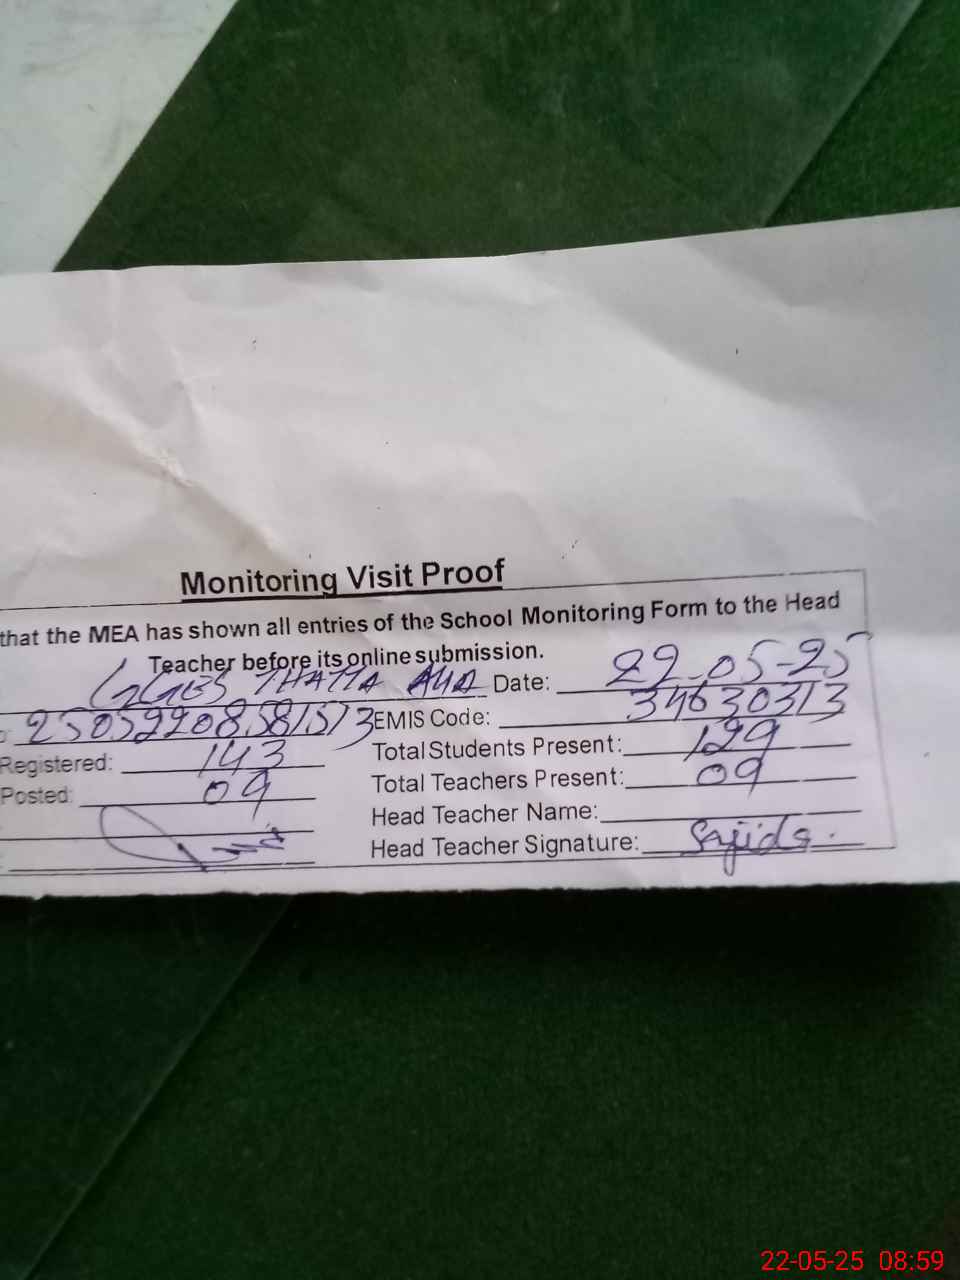 Monitoring Visit Proof
that the MEA has shown all entries of the School Monitoring Form to the Head
Teacher before its online submission.
GGES THATTA Date: 22-05-25
EMIS Code: 34630313
Registered: 143 Total Students Present: 129
Posted: 09 Total Teachers Present: 09
Head Teacher Name:
Head Teacher Signature: Sajida.
22-05-25 08:59